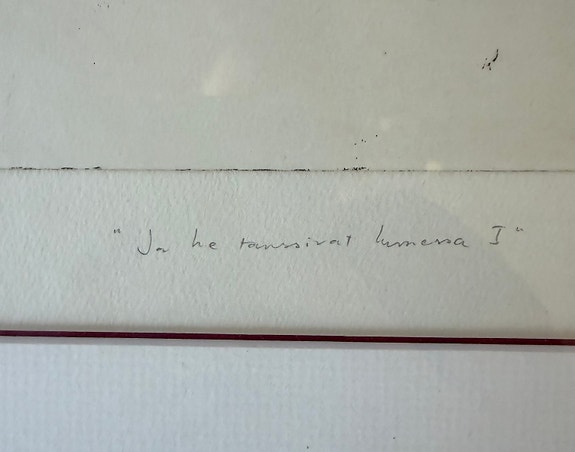 "Ja he tanssivat lumessa I"